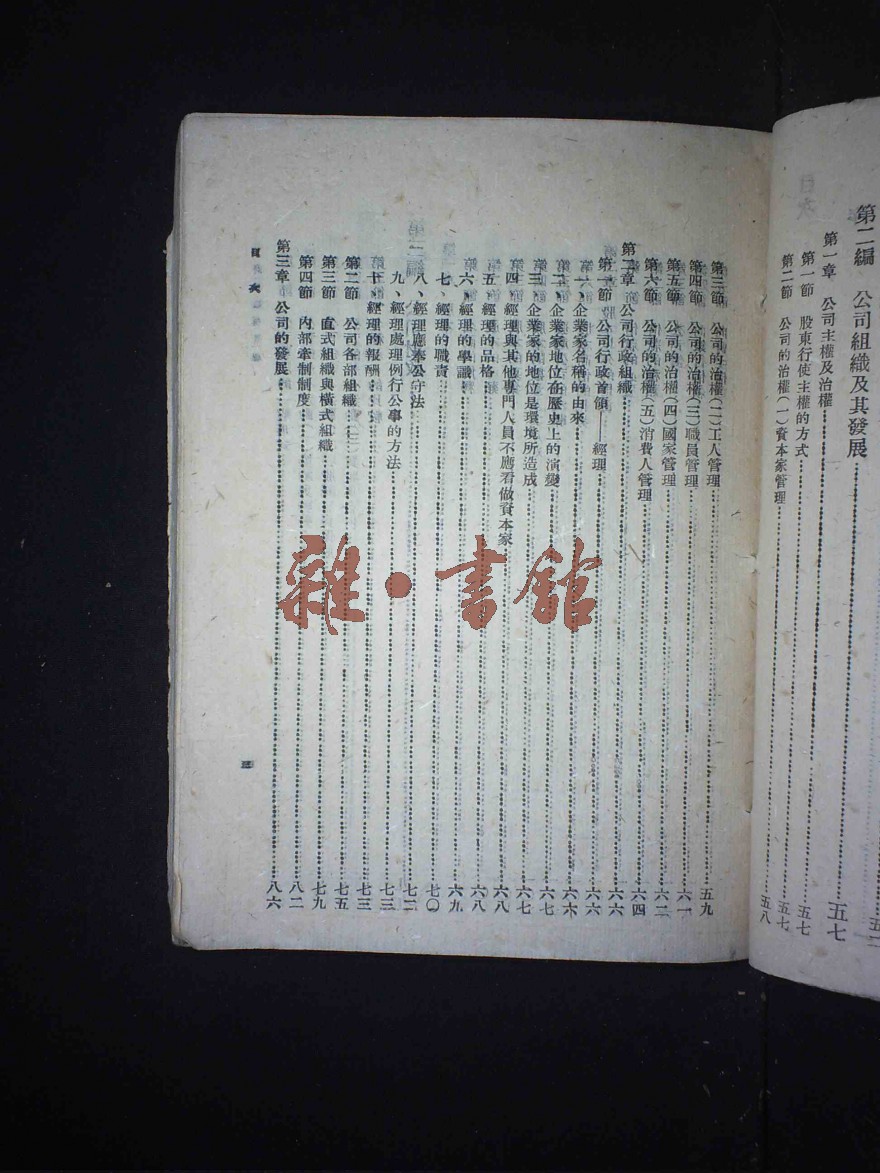 第二編　公司組織及其發展
第一章　公司主權及治權……五七
第一節　股東行使主權的方式……五七
第二節　公司的治權(一)資本家管理……五八
第三節　公司的治權(二)工人管理……五九
第四節　公司的治權(三)職員管理……六一
第五節　公司的治權(四)國家管理……六二
第六節　公司的治權(五)消費人管理……六四
第二章　公司行政組織……六六
第一節　公司行政首領——經理……六六
一、企業家名稱的由來……六六
二、企業家地位在歷史上的演變……六七
三、企業家的地位是環境所造成……六七
四、經理與其他專門人員不應看做資本家……六八
五、經理的品格……六八
六、經理的學識……六九
七、經理的職責……七〇
八、經理應奉公守法……七二
九、經理處理例行公事的方法……七三
十、經理的報酬……七三
第二節　公司各部組織……七五
第三節　直式組織與橫式組織……七九
第四節　內部牽制制度……八二
第三章　公司的發展……八六
目次
三
雜·書館